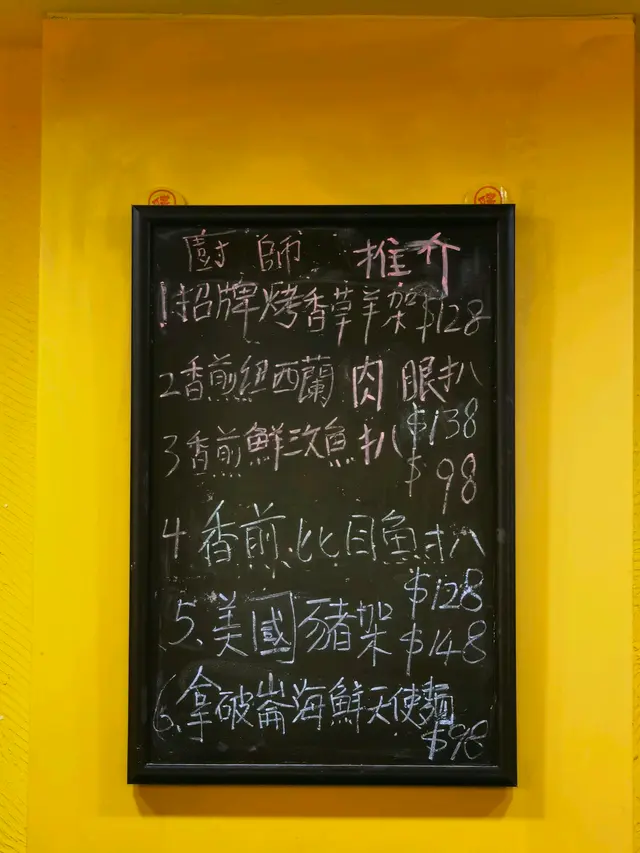 廚師 推介
1招牌烤香草羊架$128
2香煎紐西蘭肉眼扒
$138
3香煎鮮三文魚扒
$98
4香煎比目魚扒
$128
5、美國豬架$148
6、拿破崙海鮮天使麵
$98